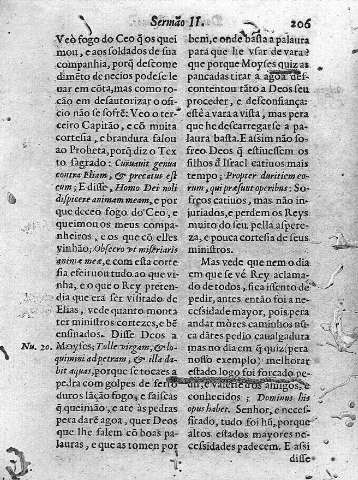 Sermão II.
206
Veò fogo do Ceo q̃ os quei
mou, e aos soldados de sua
companhia, porq̃ descome
dimẽto de necios pode se le
uar em cõta, mas como ro-
cão em desautorizar o ofi
cio não se sofre: Veo o ter-
ceiro Capitão, e cõ muita
cortesia, e brandura falou
ao Propheta, porq̃ diz o Tex
to sagrado: Curuauit genua
contra Eliam, & precatus est
eum; E disse, Homo Dei noli
dispicere animam meam, e por
que deceo fogo do Ceo, e
queimou os meus compa-
nheiros, e os que cõ elles
vinhão; Obsecro vt miserearis
animæ meæ, e com esta corte
sia efeituou tudo ao que vi-
nha, e o que o Rey preten-
dia que era ser visitado de
Elias, vede quanto monta
ter ministros cortezes, e bẽ
ensinados. Disse Deos a
Nu. 20. Moyses; Tolle virgam, & lo-
quimini ad petram, & illa da-
bit aquas, porque se tocaes a
pedra com golpes de ferro
duros lãção fogo, e faiscas
q̃ queimão, e ate às pedras
pera darẽ agoa, quer Deos
que lhe falem cõ boas pa-
lauras, e que as tomem por
bem, e onde basta a palaura
para que he vsar de vara?
que porque Moyses quiz as
pancadas tirar a agoa des-
contentou tãto a Deos seu
proceder, e desconfiança:
estè a vara a vista, mas pera
que he descarregar se a pa-
laura basta. E assim não so-
freo Deos q̃ estiuessem os
filhos d Israel catiuos mais
tempo; Propter duritiem eo-
rum, qui præsunt operibus: So-
freos catiuos, mas não in-
juriados, e perdem os Reys
muito do seu pella aspere-
za, e pouca cortesia de seus
ministros.
Mas vede que nem o dia
em que se vè Rey aclama-
do de todos, fica issento de
pedir, antes então foi a ne-
cessidade mayor, pois pera
andar mòres caminhos nũ-
ca dãtes pedio caualgadura
mas no dia em q̃ quiz (pera
nosso exemplo) melhorar
estado logo foi forçado pe-
dir, e valerse dos amigos, e
conhecidos; Dominus his
opus habet. Senhor, e neces-
sitado, tudo foi hũ, porque
altos estados mayores ne-
cessidades padecem. E assi
disse